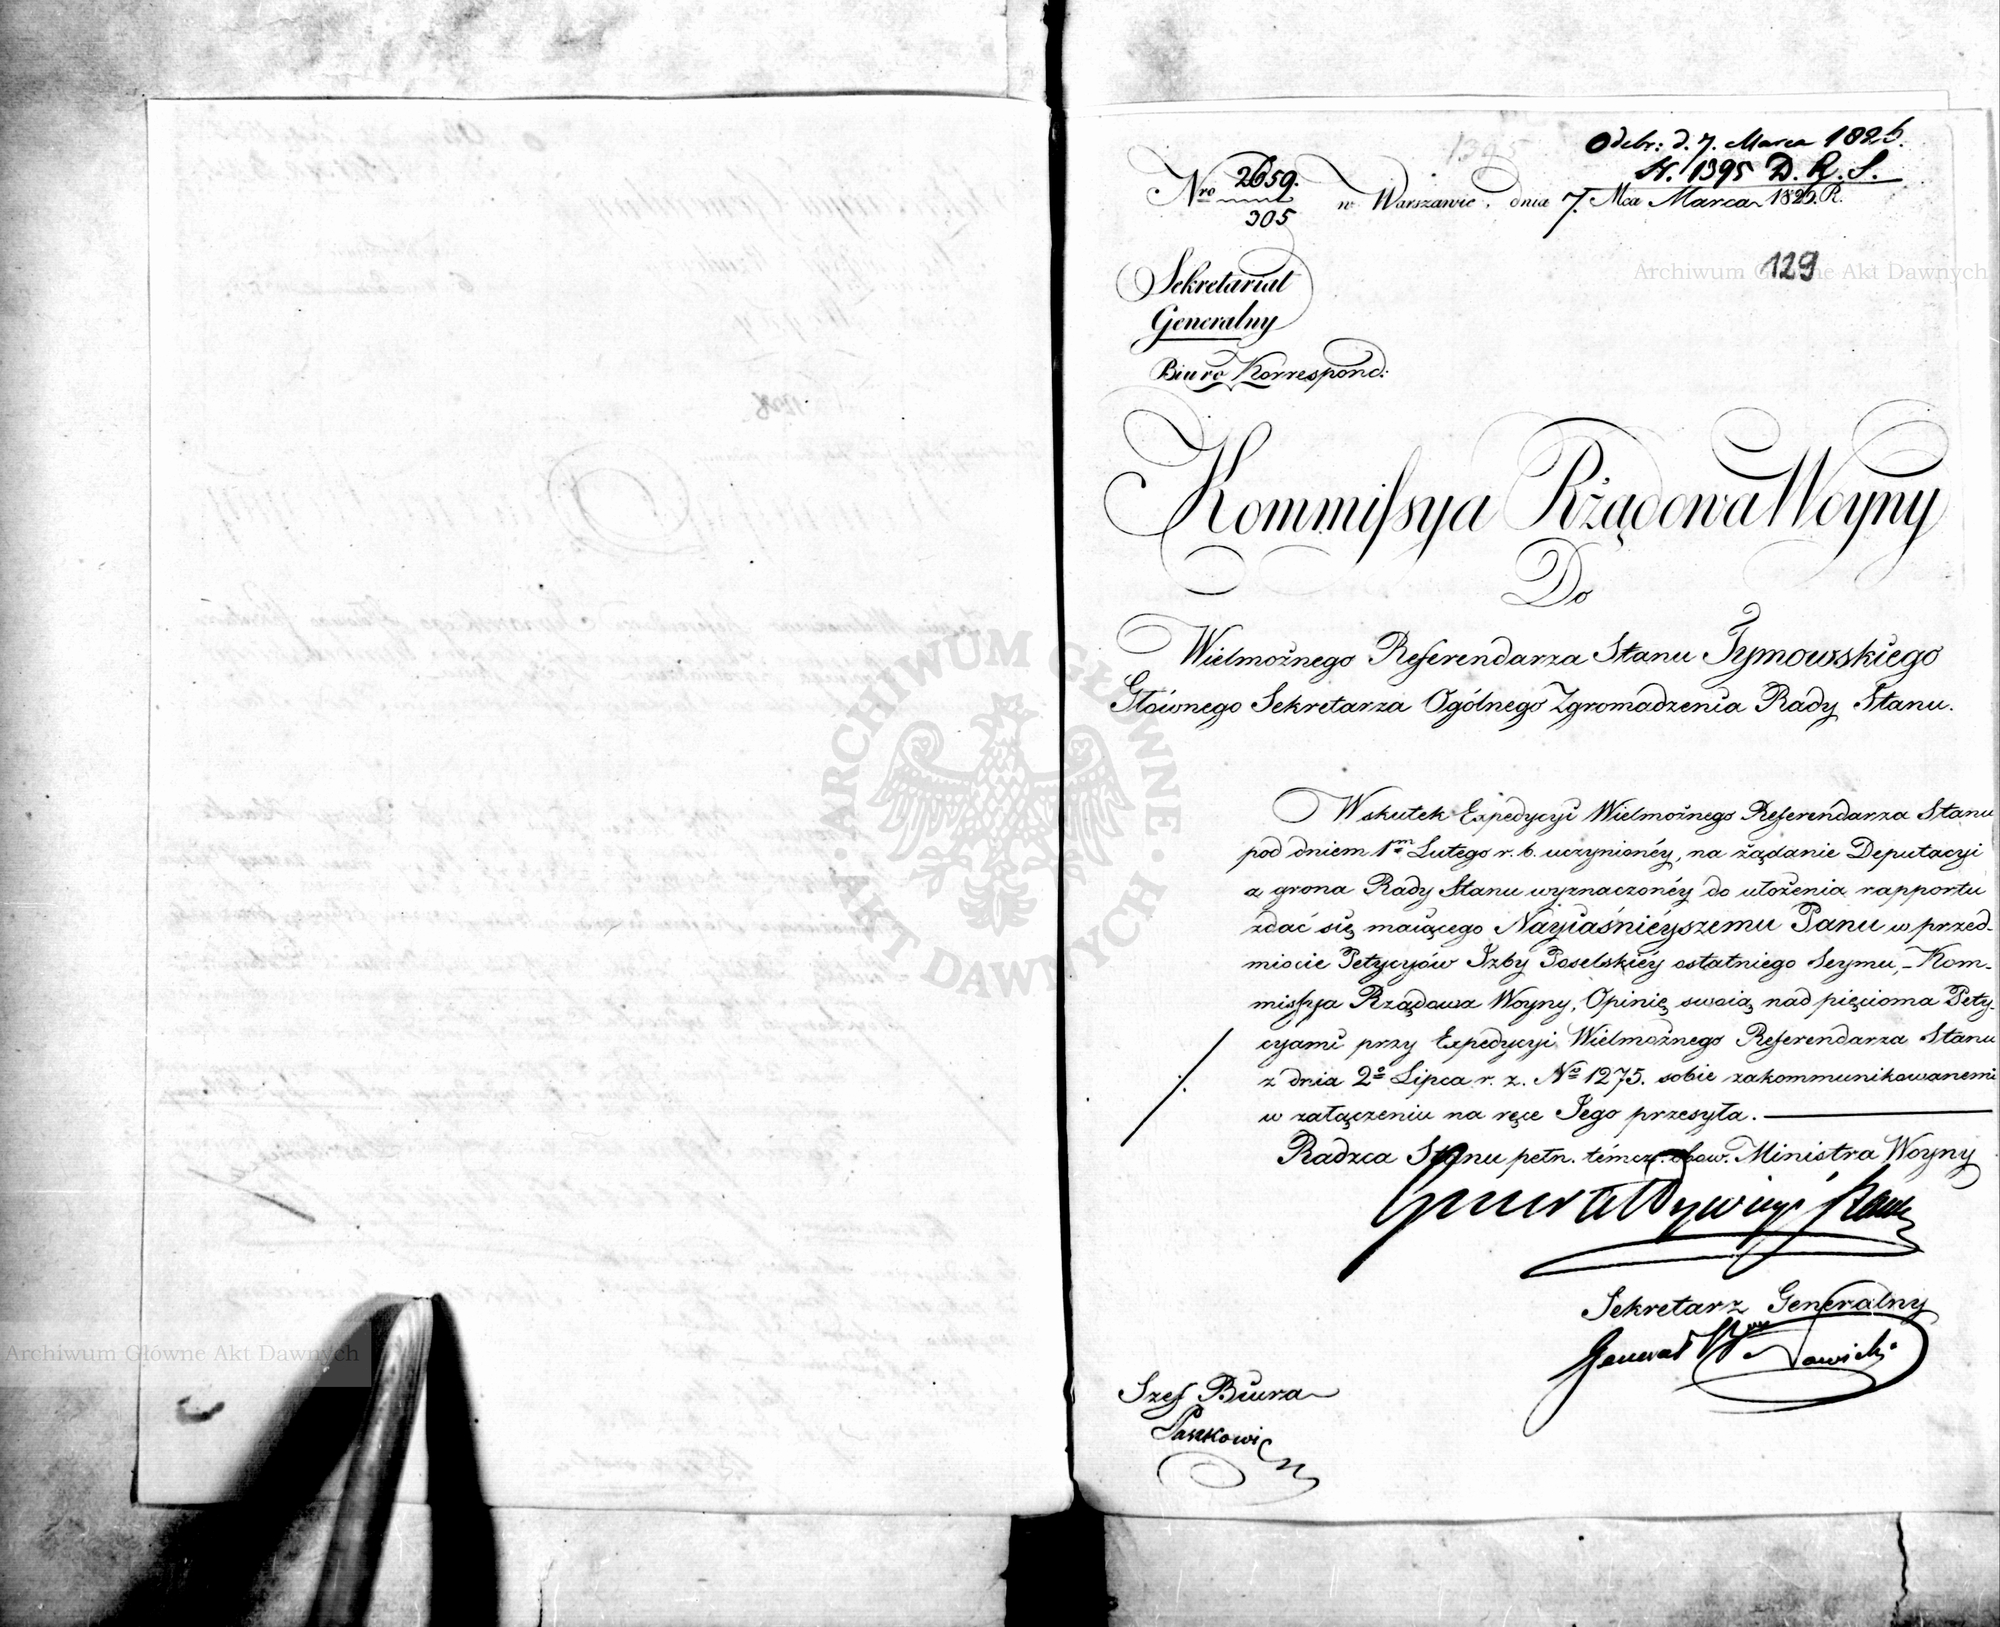 Odebr: d. 7. Marca 1826.
N. 1395 D. R. S.
1395
Nro 2659.
305
w Warszawie, dnia 7. Mca Marca 1826. R.
129
Sekretariat
Generalny
Biuro Korrespond:
Kommissya Rżądowa Woyny
Do
Wielmożnego Referendarza Stanu Tymowskiego
Głównego Sekretarza Ogólnego Zgromadzenia Rady Stanu.
Wskutek Expedycyi Wielmożnego Referendarza Stanu
pod dniem 1m Lutego r. b. uczynionéy, na żądanie Deputacyi
z grona Rady Stanu wyznaczonéy do ułożenia rapportu
zdać się maiącego Nayiaśniéyszemu Panu w przed-
miocie Petycyów Izby Poselskiéy ostatniego Seymu, - Kom-
missya Rządowa Woyny, Opinię swoią nad pięcioma Pety-
cyami przy Expedycyi Wielmożnego Referendarza Stanu
z dnia 2o Lipca r. z. No 1275. sobie zakommunikowanemi
w załączeniu na ręce Jego przesyła.
Radzca Stanu pełn. témcz. obow. Ministra Woyny
Generał
Sekretarz Generalny
Generał Nowicki
Szef Biura
Paszkowicz
Archiwum Główne Akt Dawnych
Archiwum Główne Akt Dawnych
ARCHIWUM GŁÓWNE AKT DAWNYCH